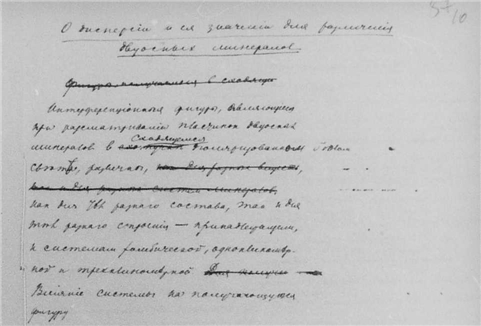 57/10
О дисперсіи и ея значеніи для различенія
двуосныхъ минераловъ.
Фигура получаемая в сходящи
Интерференціонныя фигуры, являющіяся
при разсматриваніи пластинокъ двуосныхъ
сходящемся
минераловъ в поляризованномъ
свѣтѣ, различны, как для разных веществ,
как и для разных систем минералов,
как для разнаго состава, так и для
разнаго строенія — принадлежащихъ
к системам ромбической, одноклиномѣр-
ной и трехклиномѣрной Для
Вліяніе системы на получающуюся
фигуру